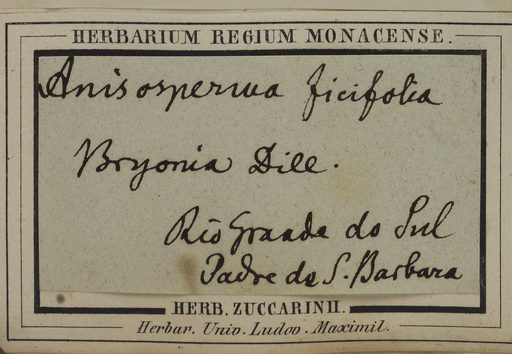 HERBARIUM REGIUM MONACENSE.
Anisosperma ficifolia
Bryonia Dill.
Rio Grande do Sul
Padre de S. Barbara
HERB. ZUCCARINII.
Herbar. Univ. Ludov. Maximil.